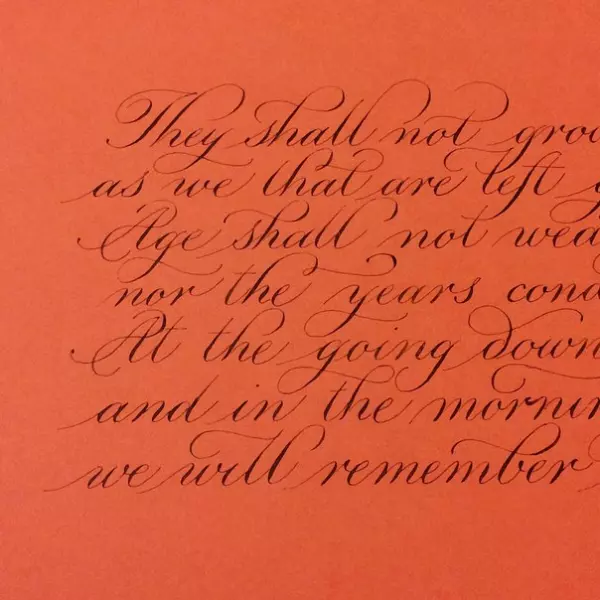 They shall not grow
as we that are left
Age shall not wea
nor the years cond
At the going down
and in the mornin
we will remember